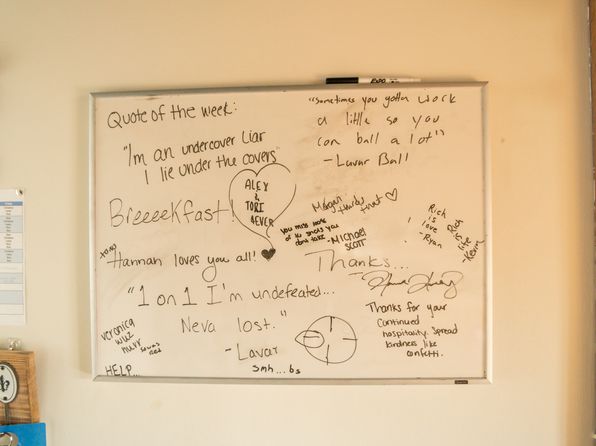 EXPO
Quote of the week:
"I'm an undercover liar
I lie under the covers"
"Sometimes you gotta work
a little so you
can ball a lot"
- Lavar Ball
ALEX
&
TORI
4EVER
Breeeekfast!
Morgan
thirdy
that
Rich
is
love
- Ryan
Rich
is
life
- Kevin
you miss
of
shots you
dont take
- MICHAEL
SCOTT
xoxo
Hannah loves you all!
Thanks...
"1 on 1 I'm undefeated...
Neva lost."
- Lavar
smh...bs
Thanks for your
continued
hospitality. Spread
kindness like
confetti.
veronica
wuz
hurr
HELP...